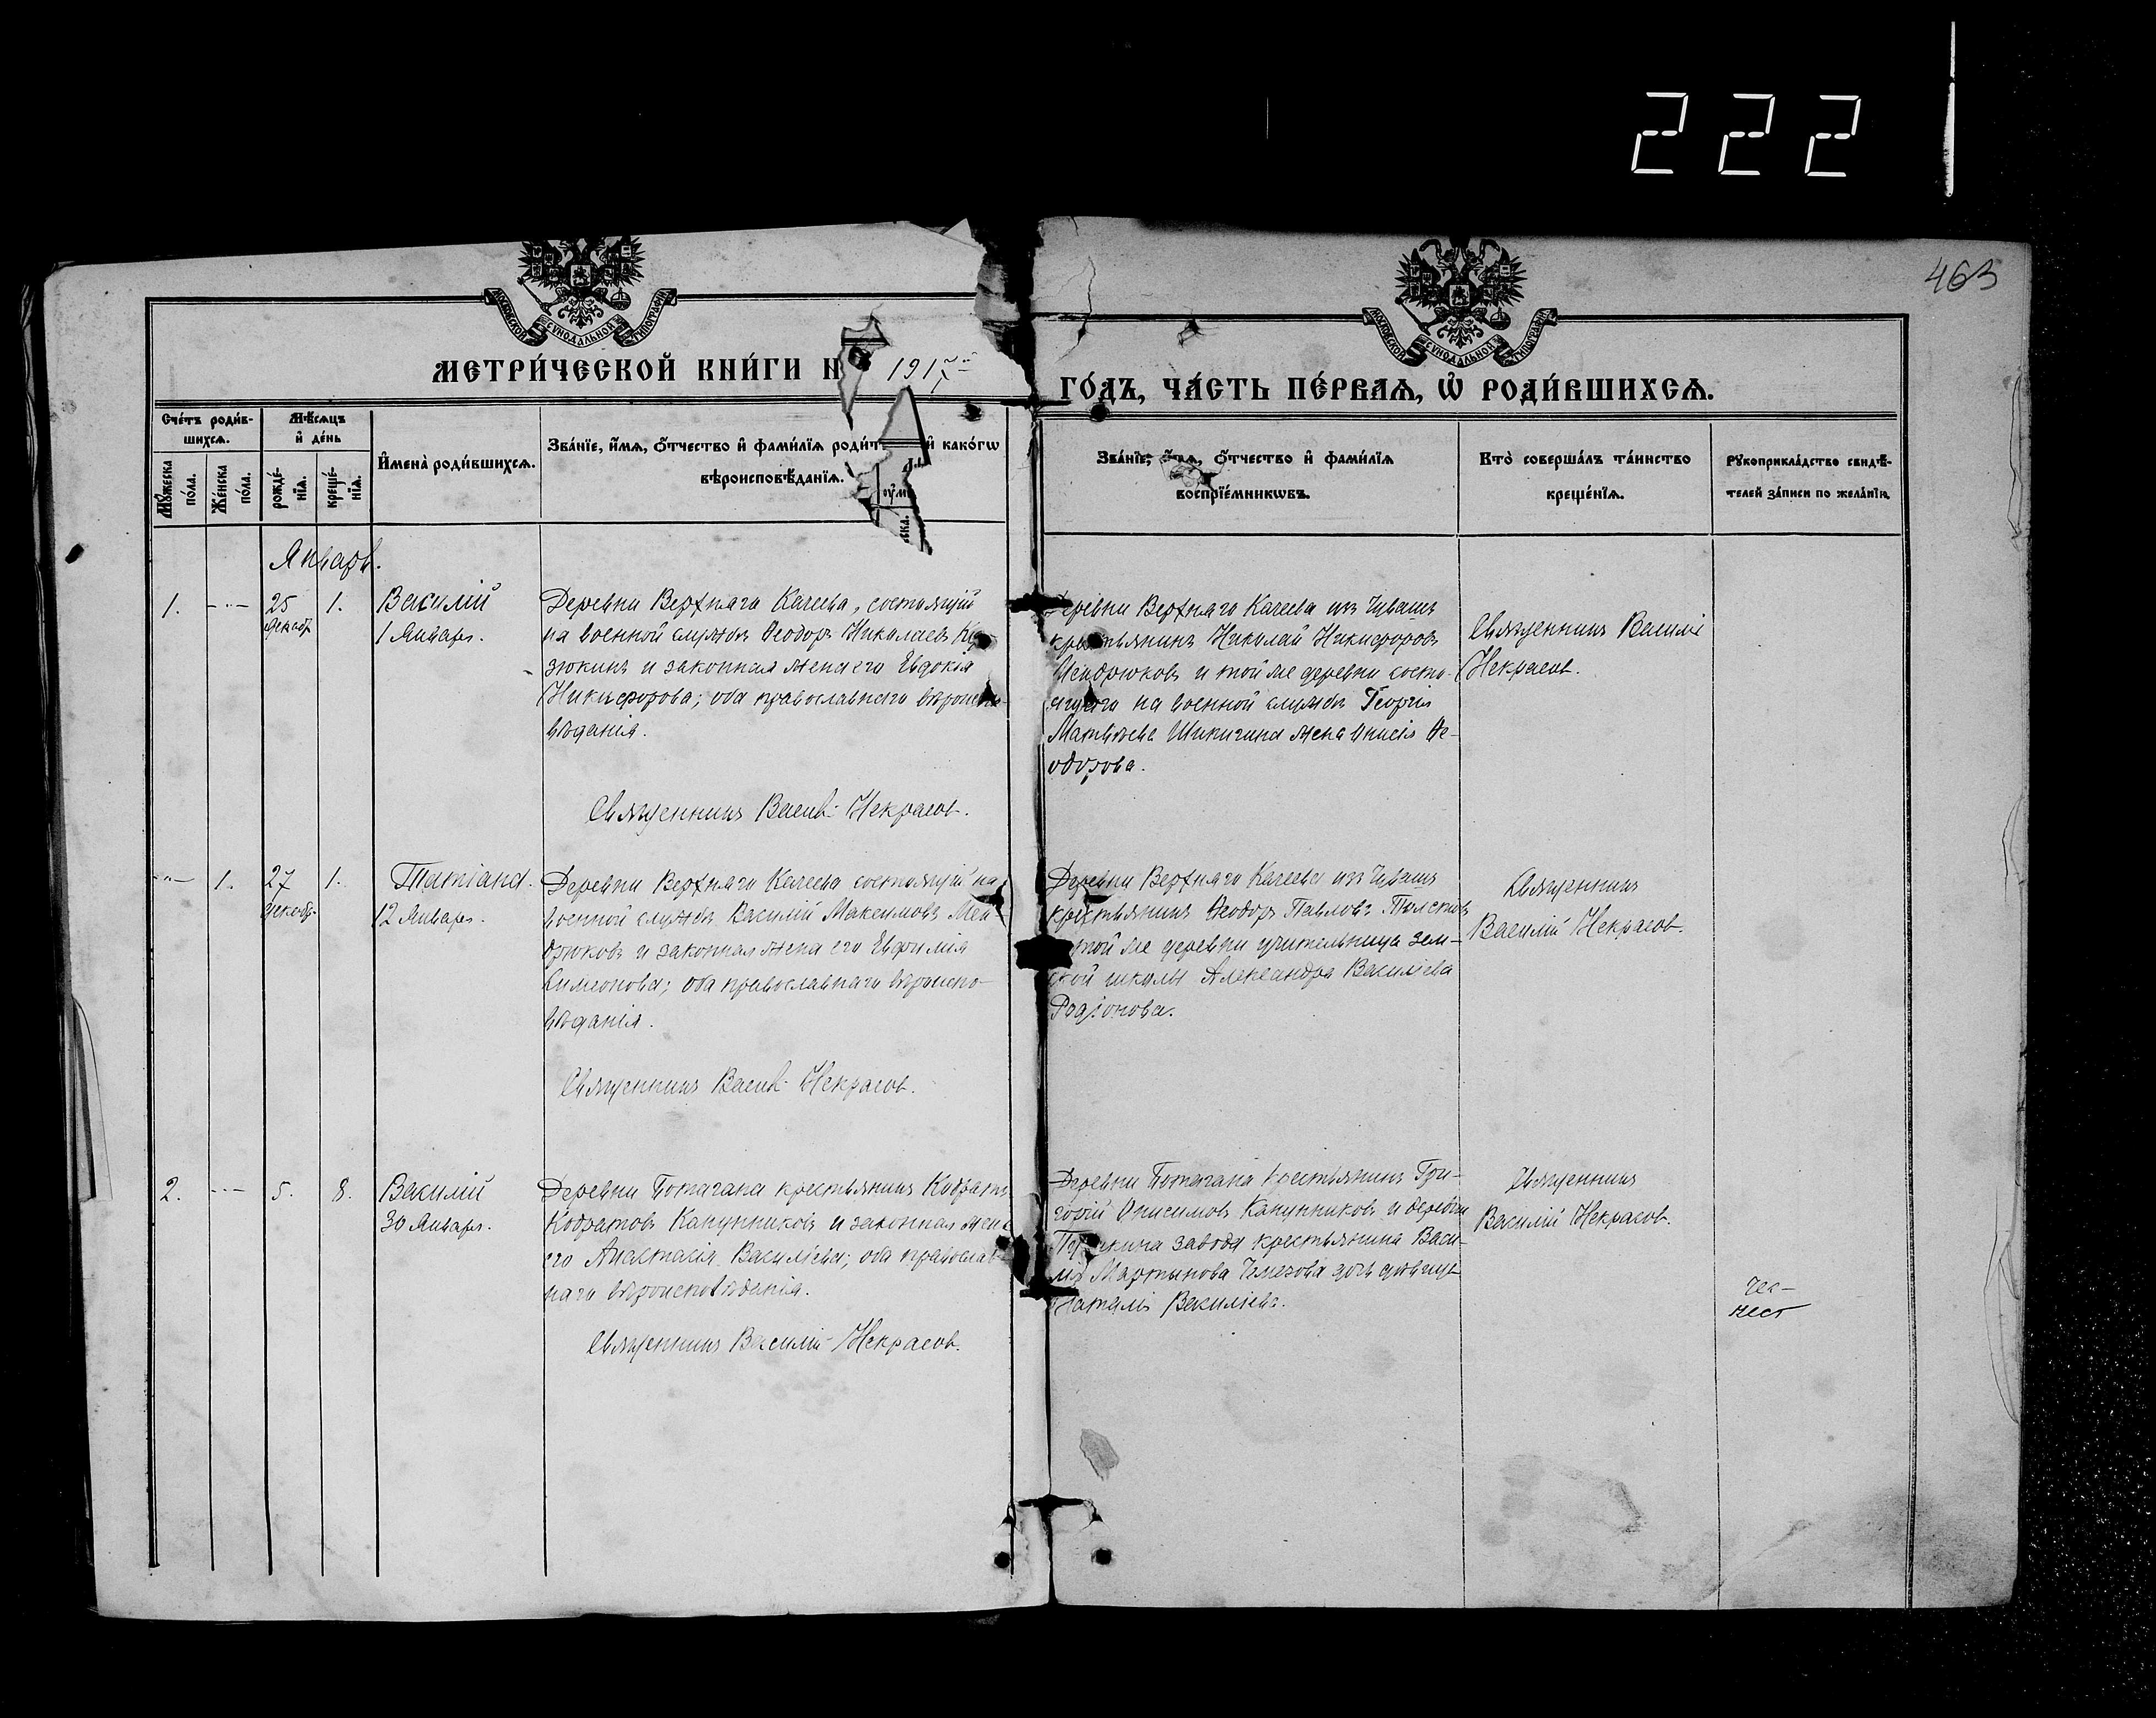 222
463
МОСКОВСКОЙ СѴНОДАЛЬНОЙ ТИПОГРАФІИ
МОСКОВСКОЙ СѴНОДАЛЬНОЙ ТИПОГРАФІИ
МЕТРИ́ЧЕСКОЙ КНИ́ГИ Н 1917й
ГО́ДЪ, ЧА́СТЬ ПЕ́РВАѦ, Ѽ РОДИ́ВШИХСѦ.
Сче́тъ роди́в-
шихсѧ.
Мѣ́сѧцъ
и҆ де́нь
Мꙋ́жеска
по́ла.
Же́нска
по́ла.
рожде́-
нїѧ.
креще́-
нїѧ.
И҆мена̀ роди́вшихсѧ.
Зва́нїе, и҆́мѧ, ѻ҆́тчество и҆ фами́лїѧ роди́т и҆ како́гѡ
вѣроисповѣ́данїѧ.
Зва́нїе, и҆́мѧ, ѻ҆́тчество и҆ фами́лїѧ
воспрїе́мникѡвъ.
Кто̀ соверша́лъ та́инство
креще́нїѧ.
Рꙋкоприкла́дство свидѣ́-
телей за́писи по жела́нїю.
Январь.
1.
25
Декабр
1.
Василій
1 Января.
Деревни Верхняго Качеева, состоящій
на военной службѣ Ѳеодоръ Николаевъ
зюкинъ и законная жена его Евдокія
Никифорова; оба православнаго вѣроиспо-
вѣданія.
Священникъ Васил. Некрасовъ.
Деревни Верхняго Качеева изъ Чувашъ
крестьянинъ Николай Никифоровъ
Мендрюковъ и той же деревни состо-
ящаго на военной службѣ Георгія
Матвѣева Шикигина жена Анисія Ѳе-
одорова.
Священникъ Василій
Некрасовъ.
1.
27
Декабр.
1.
Татіана.
12 Января.
Деревни Верхняго Качеева состоящій на
военной службѣ Василій Максимовъ Мен-
дрюковъ и законная жена его Евфимія
Симеонова; оба православнаго вѣроиспо-
вѣданія.
Священникъ Васил. Некрасовъ.
Деревни Верхняго Качеева изъ Чувашъ
крестьянинъ Ѳеодоръ Павловъ Толстовъ
той же деревни учительница зем-
ской школы Александра Василіева
Родіонова.
Священникъ
Василій Некрасовъ.
2.
5.
8.
Василій
30 Января.
Деревни Потагана крестьянинъ Кодратъ
Кодратовъ Канунниковъ и законная жена
его Анастасія Василіева; оба православ-
наго вѣроисповѣданія.
Священникъ Василій Некрасовъ.
Деревни Потагана крестьянинъ Гри-
горій Онисимовъ Канунниковъ и деревни
завода крестьянина Васи-
лія Мартынова дочь дѣвица
Наталія Василіева.
Священникъ
Василій Некрасовъ.